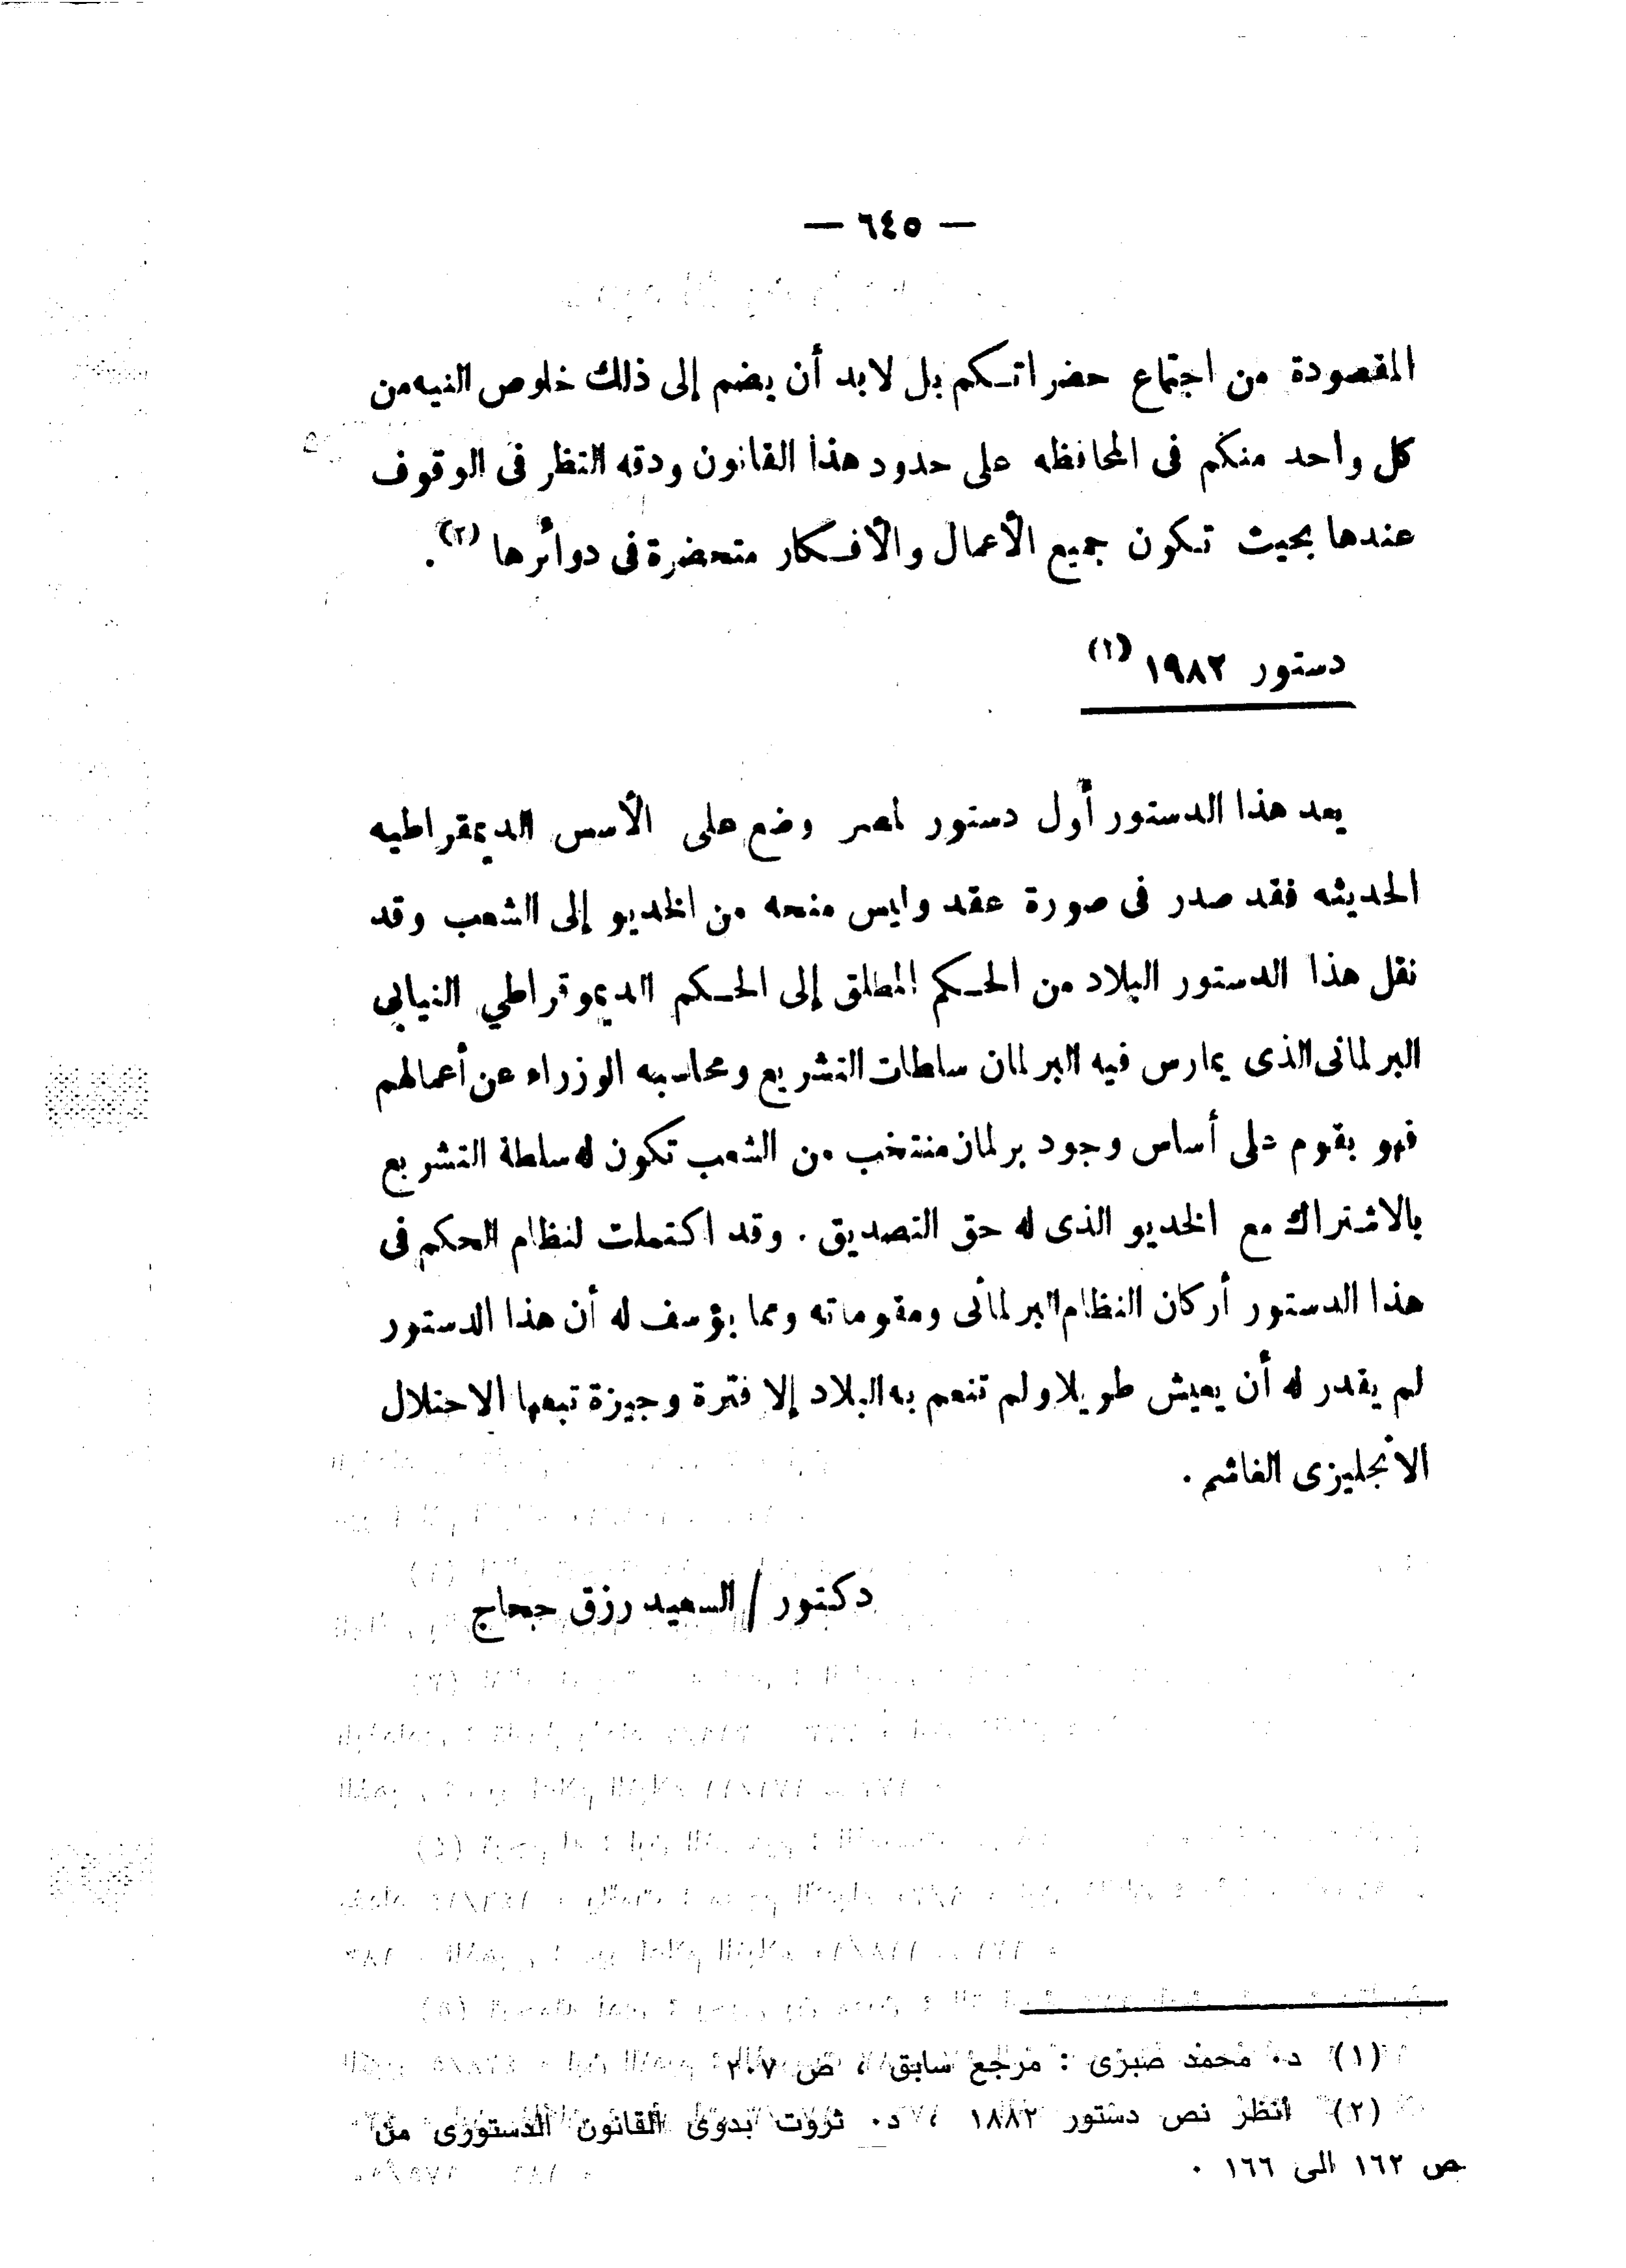 — ٦٤٥ —
المقصودة من اجتماع حضراتكم بل لابد أن يضم إلى ذلك خلوص النيه من
كل واحد منكم فى المحافظه على حدود هذا القانون ودقه النظر فى الوقوف
عندها بحيث تكون جميع الأعمال والأفكار متحضرة فى دوائرها (٢).
دستور ١٩٨٢ (١)
يعد هذا الدستور أول دستور لمصر وضع على الأسس الديمقراطيه
الحديثه فقد صدر فى صورة عقد وليس منحه من الخديو إلى الشعب وقد
نقل هذا الدستور البلاد من الحكم المطلق إلى الحكم الديموقراطي النيابى
البرلمانى الذى يمارس فيه البرلمان سلطات التشريع ومحاسبه الوزراء عن أعمالهم
فهو يقوم على أساس وجود برلمان منتخب من الشعب تكون له سلطة التشريع
بالاشتراك مع الخديو الذى له حق التصديق . وقد اكتملت لنظام الحكم فى
هذا الدستور أركان النظام البرلمانى ومقوماته ومما يؤسف له أن هذا الدستور
لم يقدر له أن يعيش طويلا ولم تنعم به البلاد إلا فترة وجيزة تبعها الاحتلال
الانجليزى الغاشم .
دكتور / السعيد رزق حجاج
(١) د. محمد صبرى : مرجع سابق ، ص ٢٠٧
(٢) انظر نص دستور ١٨٨٢ ، د. ثروت بدوى القانون الدستورى من
ص ١٦٢ الى ١٦٦ .